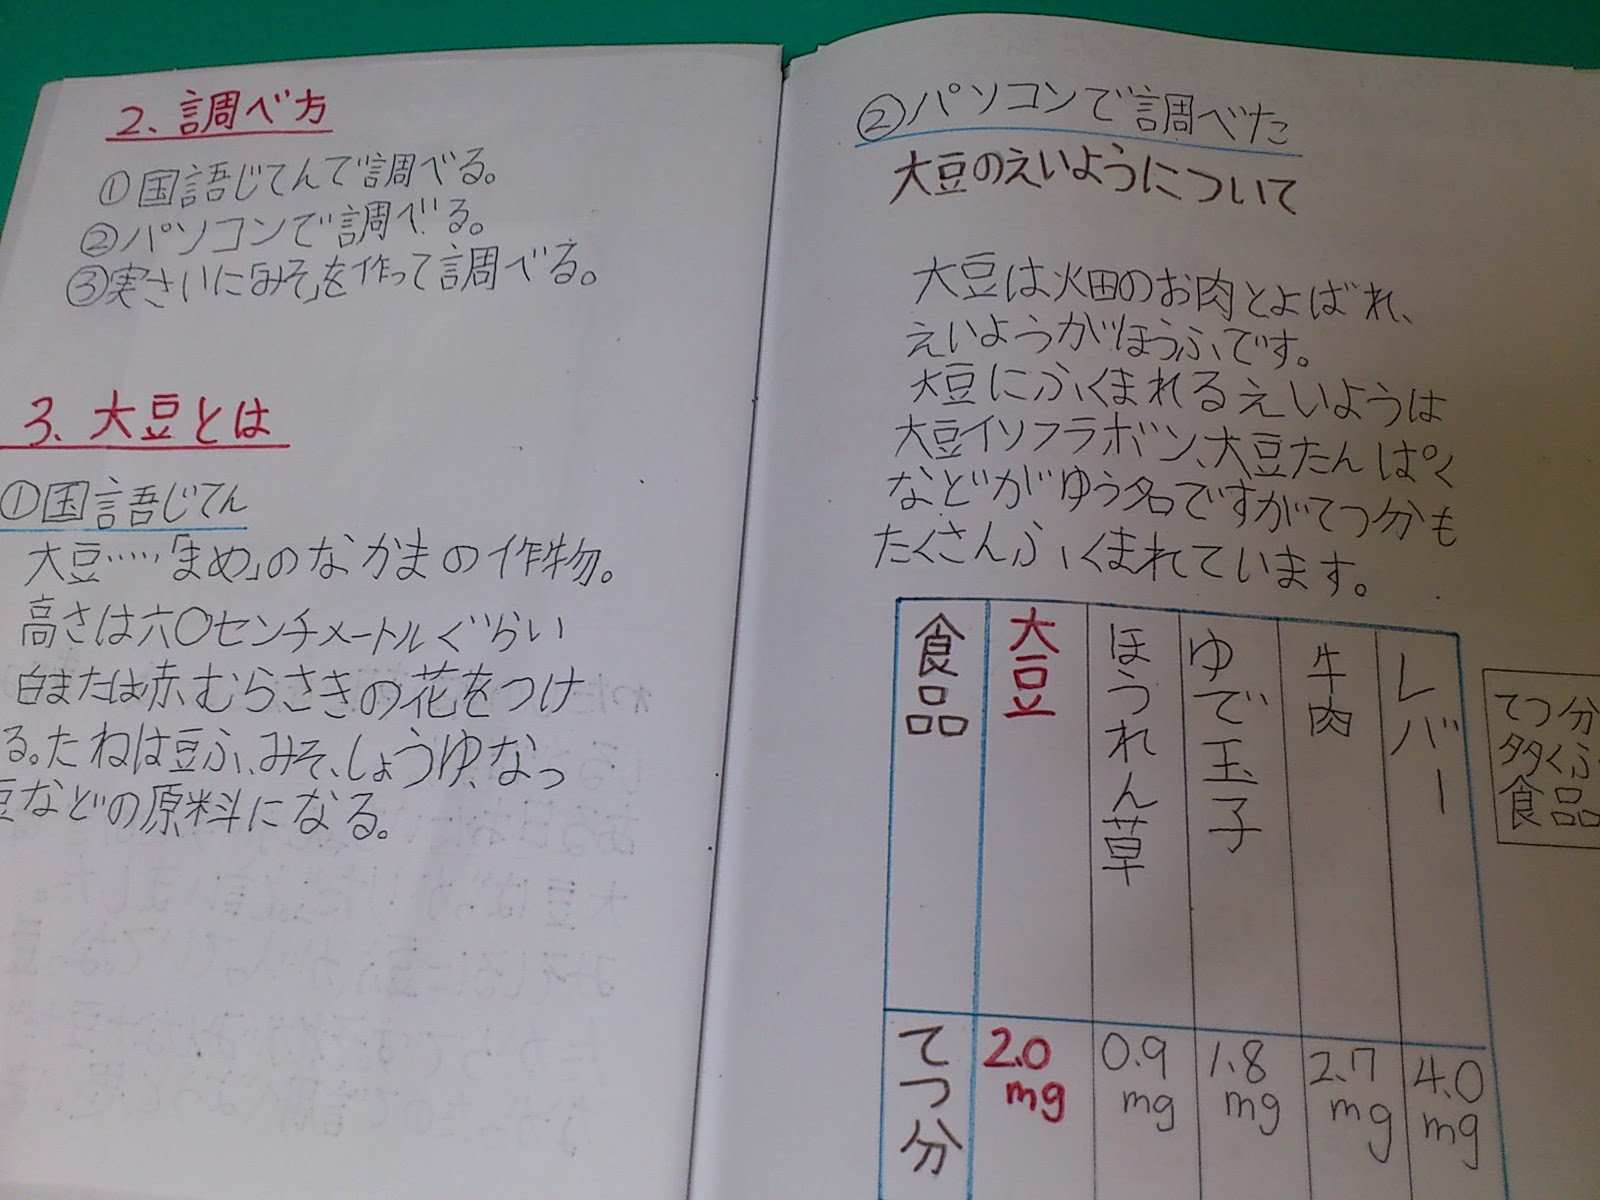 2、調べ方
①国語じてんで調べる。
②パソコンで調べる。
③実さいに「みそ」を作って調べる。
3、大豆とは
①国語じてん
大豆……「まめ」のなかまの作物。
高さは六〇センチメートルぐらい
白または赤むらさきの花をつけ
る。たねは豆ふ、みそ、しょうゆ、なっ
豆などの原料になる。
②パソコンで調べた
大豆のえいようについて
大豆は畑のお肉とよばれ、
えいようがほうふです。
大豆にふくまれるえいようは
大豆イソフラボン、大豆たんぱく
などがゆう名ですがてつ分も
たくさんふくまれています。
食品
大豆
ほうれん草
ゆで玉子
牛肉
レバー
てつ分
2.0mg
0.9mg
1.8mg
2.7mg
4.0mg
てつ分
多くふ
食品